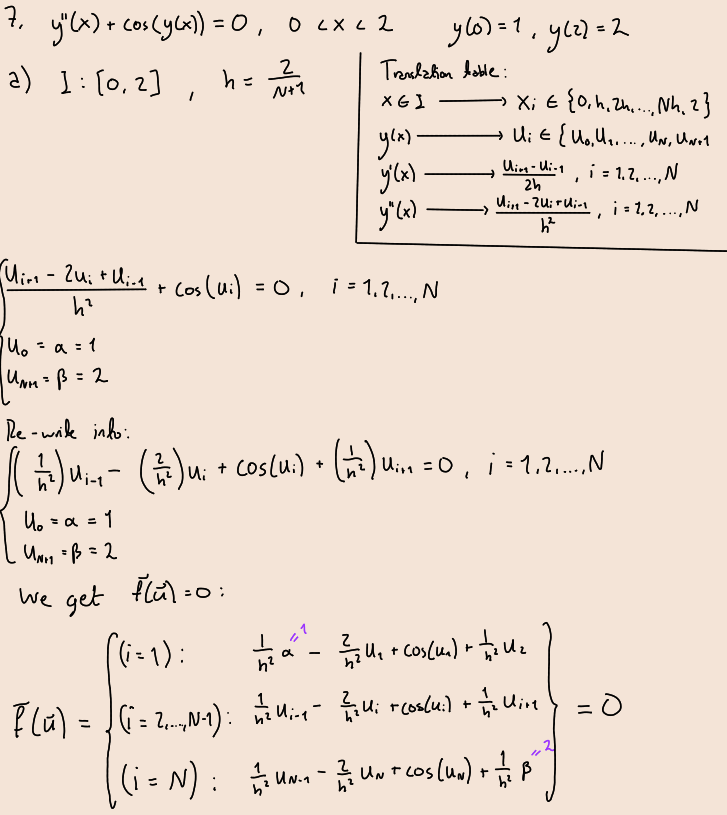 7. y''(x) + cos(y(x)) = 0, 0 < x < 2 y(0) = 1, y(2) = 2
a) I : [0, 2] , h = 2/(N+1)
Translation table:
x ∈ I → x_i ∈ {0, h, 2h, ..., Nh, 2}
y(x) → u_i ∈ {u_0, u_1, ..., u_N, u_{N+1}
y'(x) → (u_{i+1} - u_{i-1})/2h , i = 1, 2, ..., N
y''(x) → (u_{i+1} - 2u_i + u_{i-1})/h² , i = 1, 2, ..., N
(u_{i+1} - 2u_i + u_{i-1})/h² + cos(u_i) = 0, i = 1, 2, ..., N
u_0 = α = 1
u_{N+1} = β = 2
Re-write into:
(1/h²) u_{i-1} - (2/h²) u_i + cos(u_i) + (1/h²) u_{i+1} = 0 , i = 1, 2, ..., N
u_0 = α = 1
u_{N+1} = β = 2
We get f̄(ū) = 0 :
(i = 1) : 1/h² α =1 - 2/h² u_1 + cos(u_1) + 1/h² u_2
f̄(ū) = (i = 2, ..., N-1) : 1/h² u_{i-1} - 2/h² u_i + cos(u_i) + 1/h² u_{i+1} = 0
(i = N) : 1/h² u_{N-1} - 2/h² u_N + cos(u_N) + 1/h² β =2